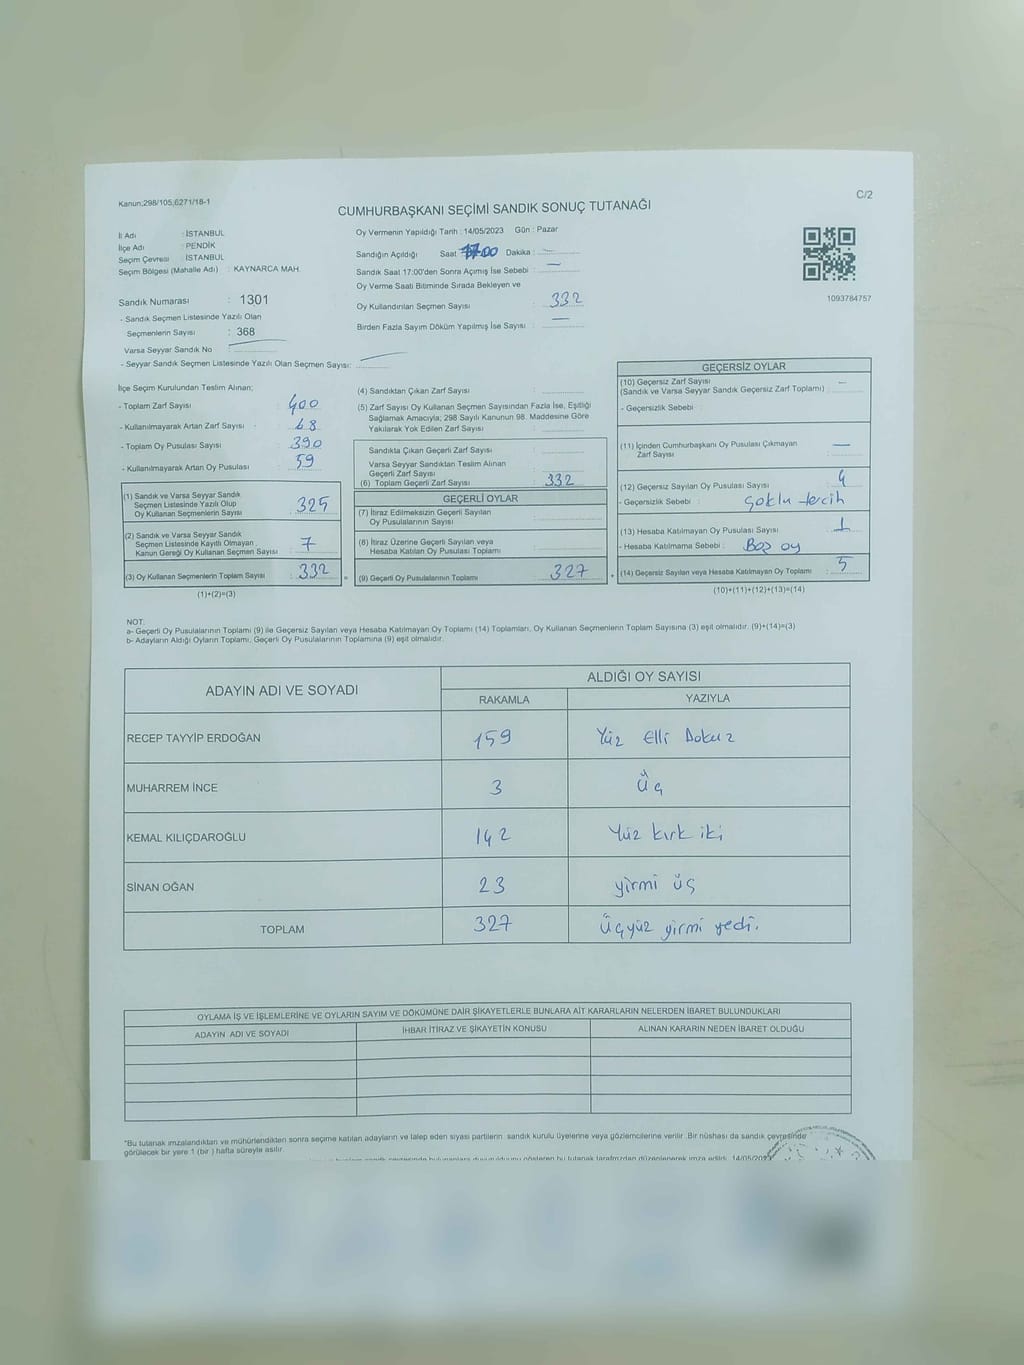 Kanun;298/105,6271/18-1
C/2
CUMHURBAŞKANI SEÇİMİ SANDIK SONUÇ TUTANAĞI
İl Adı : İSTANBUL
İlçe Adı : PENDİK
Seçim Çevresi : İSTANBUL
Seçim Bölgesi (Mahalle Adı) : KAYNARCA MAH.
Sandık Numarası : 1301
- Sandık Seçmen Listesinde Yazılı Olan
Seçmenlerin Sayısı : 368
Varsa Seyyar Sandık No :
- Seyyar Sandık Seçmen Listesinde Yazılı Olan Seçmen Sayısı:
Oy Vermenin Yapıldığı Tarih : 14/05/2023 Gün : Pazar
Sandığın Açıldığı Saat 17.00 Dakika : —
Sandık Saat 17:00'den Sonra Açımış İse Sebebi : —
Oy Verme Saati Bitiminde Sırada Bekleyen ve
Oy Kullandırılan Seçmen Sayısı : 332
Birden Fazla Sayım Döküm Yapılmış İse Sayısı : —
1093784757
İlçe Seçim Kurulundan Teslim Alınan;
- Toplam Zarf Sayısı : 400
- Kullanılmayarak Artan Zarf Sayısı : 68
- Toplam Oy Pusulası Sayısı : 390
- Kullanılmayarak Artan Oy Pusulası : 59
(1) Sandık ve Varsa Seyyar Sandık
Seçmen Listesinde Yazılı Olup
Oy Kullanan Seçmenlerin Sayısı : 325
(2) Sandık ve Varsa Seyyar Sandık
Seçmen Listesinde Kayıtlı Olmayan
Kanun Gereği Oy Kullanan Seçmen Sayısı : 7
(3) Oy Kullanan Seçmenlerin Toplam Sayısı : 332
(1)+(2)=(3)
(4) Sandıktan Çıkan Zarf Sayısı :
(5) Zarf Sayısı Oy Kullanan Seçmen Sayısından Fazla İse, Eşitliği
Sağlamak Amacıyla; 298 Sayılı Kanunun 98. Maddesine Göre
Yakılarak Yok Edilen Zarf Sayısı :
Sandıkta Çıkan Geçerli Zarf Sayısı :
Varsa Seyyar Sandıktan Teslim Alınan
Geçerli Zarf Sayısı :
(6) Toplam Geçerli Zarf Sayısı : 332
GEÇERLİ OYLAR
(7) İtiraz Edilmeksizin Geçerli Sayılan
Oy Pusulalarının Sayısı :
(8) İtiraz Üzerine Geçerli Sayılan veya
Hesaba Katılan Oy Pusulası Toplamı :
(9) Geçerli Oy Pusulalarının Toplamı : 327
GEÇERSİZ OYLAR
(10) Geçersiz Zarf Sayısı : —
(Sandık ve Varsa Seyyar Sandık Geçersiz Zarf Toplamı)
- Geçersizlik Sebebi :
(11) İçinden Cumhurbaşkanı Oy Pusulası Çıkmayan
Zarf Sayısı : —
(12) Geçersiz Sayılan Oy Pusulası Sayısı : 4
- Geçersizlik Sebebi : çoklu tercih
(13) Hesaba Katılmayan Oy Pusulası Sayısı : 1
- Hesaba Katılmama Sebebi : Boş oy
(14) Geçersiz Sayılan veya Hesaba Katılmayan Oy Toplamı : 5
(10)+(11)+(12)+(13)=(14)
NOT:
a- Geçerli Oy Pusulalarının Toplamı (9) ile Geçersiz Sayılan veya Hesaba Katılmayan Oy Toplamı (14) Toplamları, Oy Kullanan Seçmenlerin Toplam Sayısına (3) eşit olmalıdır. (9)+(14)=(3)
b- Adayların Aldığı Oyların Toplamı, Geçerli Oy Pusulalarının Toplamına (9) eşit olmalıdır.
ADAYIN ADI VE SOYADI
ALDIĞI OY SAYISI
RAKAMLA YAZIYLA
RECEP TAYYİP ERDOĞAN 159 Yüz Elli Dokuz
MUHARREM İNCE 3 Üç
KEMAL KILIÇDAROĞLU 142 Yüz kırk iki
SİNAN OĞAN 23 yirmi üç
TOPLAM 327 Üçyüz yirmi yedi.
OYLAMA İŞ VE İŞLEMLERİNE VE OYLARIN SAYIM VE DÖKÜMÜNE DAİR ŞİKAYETLERLE BUNLARA AİT KARARLARIN NELERDEN İBARET BULUNDUKLARI
ADAYIN ADI VE SOYADI İHBAR İTİRAZ VE ŞİKAYETİN KONUSU ALINAN KARARIN NEDEN İBARET OLDUĞU
*Bu tutanak imzalandıktan ve mühürlendikten sonra seçime katılan adayların ve talep eden siyasi partilerin sandık kurulu üyelerine veya gözlemcilerine verilir. Bir nüshası da sandık çevresinde
görülecek bir yere 1 (bir ) hafta süreyle asılır.